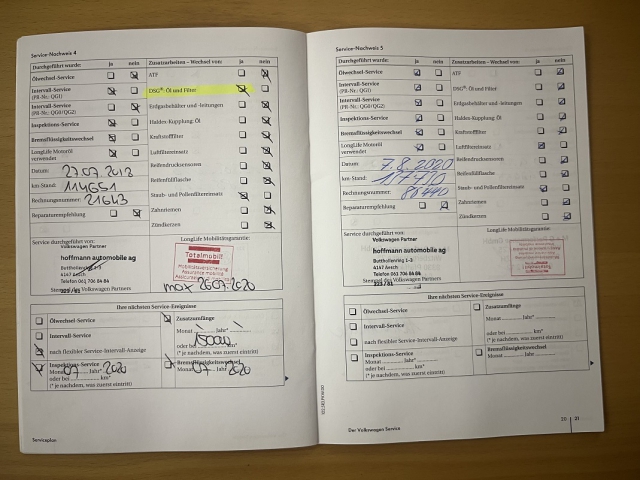 Service-Nachweis 4
Durchgeführt wurde: ja nein
Ölwechsel-Service
Intervall-Service
(PR-Nr.: QG1)
Intervall-Service
(PR-Nr.: QG0/QG2)
Inspektions-Service
Bremsflüssigkeitswechsel
LongLife Motoröl
verwendet
Datum:
km-Stand: 114651
Rechnungsnummer: 21643
Reparaturempfehlung
Zusatzarbeiten – Wechsel von: ja nein
ATF
DSG®-Öl und Filter
Erdgasbehälter und -leitungen
Haldex-Kupplung: Öl
Kraftstofffilter
Luftfiltereinsatz
Reifendrucksensoren
Reifenfüllflasche
Staub- und Pollenfiltereinsatz
Zahnriemen
Zündkerzen
Service durchgeführt von:
Volkswagen Partner
hoffmann automobile ag
4147 Aesch
Telefon 061 706 84 84
Stempel des Volkswagen Partners
LongLife Mobilitätsgarantie:
Totalmobil!
Mobilitätsversicherung
Assurance mobilité
Ihre nächsten Service-Ereignisse
Ölwechsel-Service
Intervall-Service
nach flexibler Service-Intervall-Anzeige
Inspektions-Service
Monat 07 Jahr* 2020
oder bei km*
(* je nachdem, was zuerst eintritt)
Zusatzumfänge
Monat Jahr*
oder bei 15000 km*
(* je nachdem, was zuerst eintritt)
Bremsflüssigkeitswechsel
Monat 07 Jahr 2020
Serviceplan
Service-Nachweis 5
Durchgeführt wurde: ja nein
Ölwechsel-Service
Intervall-Service
(PR-Nr.: QG1)
Intervall-Service
(PR-Nr.: QG0/QG2)
Inspektions-Service
Bremsflüssigkeitswechsel
LongLife Motoröl
verwendet
Datum: 7.8.2020
km-Stand:
Rechnungsnummer:
Reparaturempfehlung
Zusatzarbeiten – Wechsel von: ja nein
ATF
DSG®: Öl und Filter
Erdgasbehälter und -leitungen
Haldex-Kupplung: Öl
Kraftstofffilter
Luftfiltereinsatz
Reifendrucksensoren
Reifenfüllflasche
Staub- und Pollenfiltereinsatz
Zahnriemen
Zündkerzen
Service durchgeführt von:
Volkswagen Partner
hoffmann automobile ag
4147 Aesch
Telefon 061 706 84 84
Stempel des Volkswagen Partners
LongLife Mobilitätsgarantie:
Ihre nächsten Service-Ereignisse
Ölwechsel-Service
Intervall-Service
nach flexibler Service-Intervall-Anzeige
Inspektions-Service
Monat Jahr*
oder bei km*
(* je nachdem, was zuerst eintritt)
Zusatzumfänge
Monat Jahr*
oder bei km*
(* je nachdem, was zuerst eintritt)
Bremsflüssigkeitswechsel
Monat Jahr*
Der Volkswagen Service
20 21